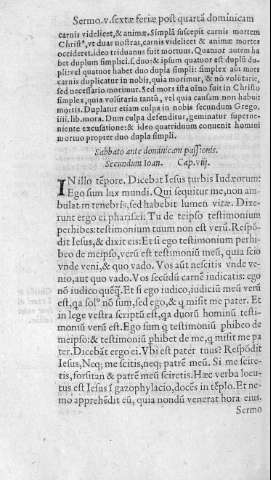 Sermo.v.sextæ feriæ post quartā dominicam
carnis videlicet,& animæ. Simplā suscepit carnis mortem
Christꝰ, vt duas nostras, carnis videlicet & animæ mortes
occideret. ideo triduanus fuit noctuus. Quatuor autem ha
bet duplum simplici. s. duo: & ipsum quatuor est duplū du
pli: vel quatuor habet duo dupla simpli: simplex aūt mors
carnis duplicatur in nobis, quia morimur, & nō volūtarie,
sed necessario morimur. Sed mors ista oīno fuit in Christo
simplex, quia volūtaria tantū, vel quia causam non habuit
mortis. Duplatur etiam culpa in nobis secundum Grego.
iiij. lib. mora. Dum culpa defenditur, geminatur superue-
niente excusatione: & ideo quatriduum conuenit homini
mortuo propter duo dupla simpli.
Sabbato ante dominicam passionis.
Secundum Ioan. Cap. viij.
IN illo tēpore. Dicebat Iesus turbis Iudæorum:
Ego sum lux mundi. Qui sequitur me, non am
bulat in tenebris, sed habebit lumen vitæ. Dixe-
runt ergo ei pharisei: Tu de teipso testimonium
perhibes: testimonium tuum non est verū. Respō-
dit Iesus, & dixit eis: Et si ego testimonium perhi-
beo de meipso, verū est testimoniū meū, quia scio
vnde veni, & quo vado. Vos aūt nescitis vnde ve-
nio, aut quo vado. Vos secūdū carnē iudicatis: ego
nō iudico quēꝗ̄. Et si ego iudico, iudiciū meū verū
est, ꝗa solꝰ nō sum, sed ego, & ꝗ misit me pater. Et
in lege vestra scriptū est, ꝗa duorū hominū testi-
moniū verū est. Ego sum ꝗ testimoniū phibeo de
meipso: & testimoniū phibet de me, ꝗ misit me pa
ter. Dicebāt ergo ei. Vbi est pater tuus? Respōdit
Iesus, Neqꝫ me scitis, neqꝫ patrē meū. Si me scire-
tis, forsitan & patrē meū sciretis. Hæc verba locu-
tus est Iesus ī gazophylacio, docēs in tēplo. Et ne-
mo apprehēdit eū, quia nondū venerat hora eius.
Sermo